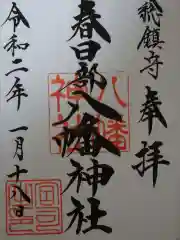 總鎮守
奉拝
春日部八幡神社
令和二年一月十八日
八幡